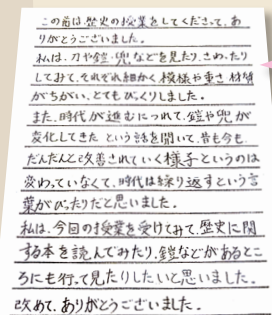 この前は、歴史の授業をしてくださって、あ
りがとうございました。
私は、刀や鎧・兜などを見たり、さわったり
してみて、それぞれ細かく模様や重さ、材質
がちがい、とてもびっくりしました。
また、時代が進むにつれて、鎧や兜が
変化してきたという話を聞いて、昔も今も
だんだんと改善されていく様子というのは
変わっていなくて、時代は繰り返すという言
葉がぴったりだと思いました。
私は、今回の授業を受けてみて、歴史に関
する本を読んでみたり、鎧などがあるとこ
ろにも行って見たりしたいと思いました。
改めて、ありがとうございました。